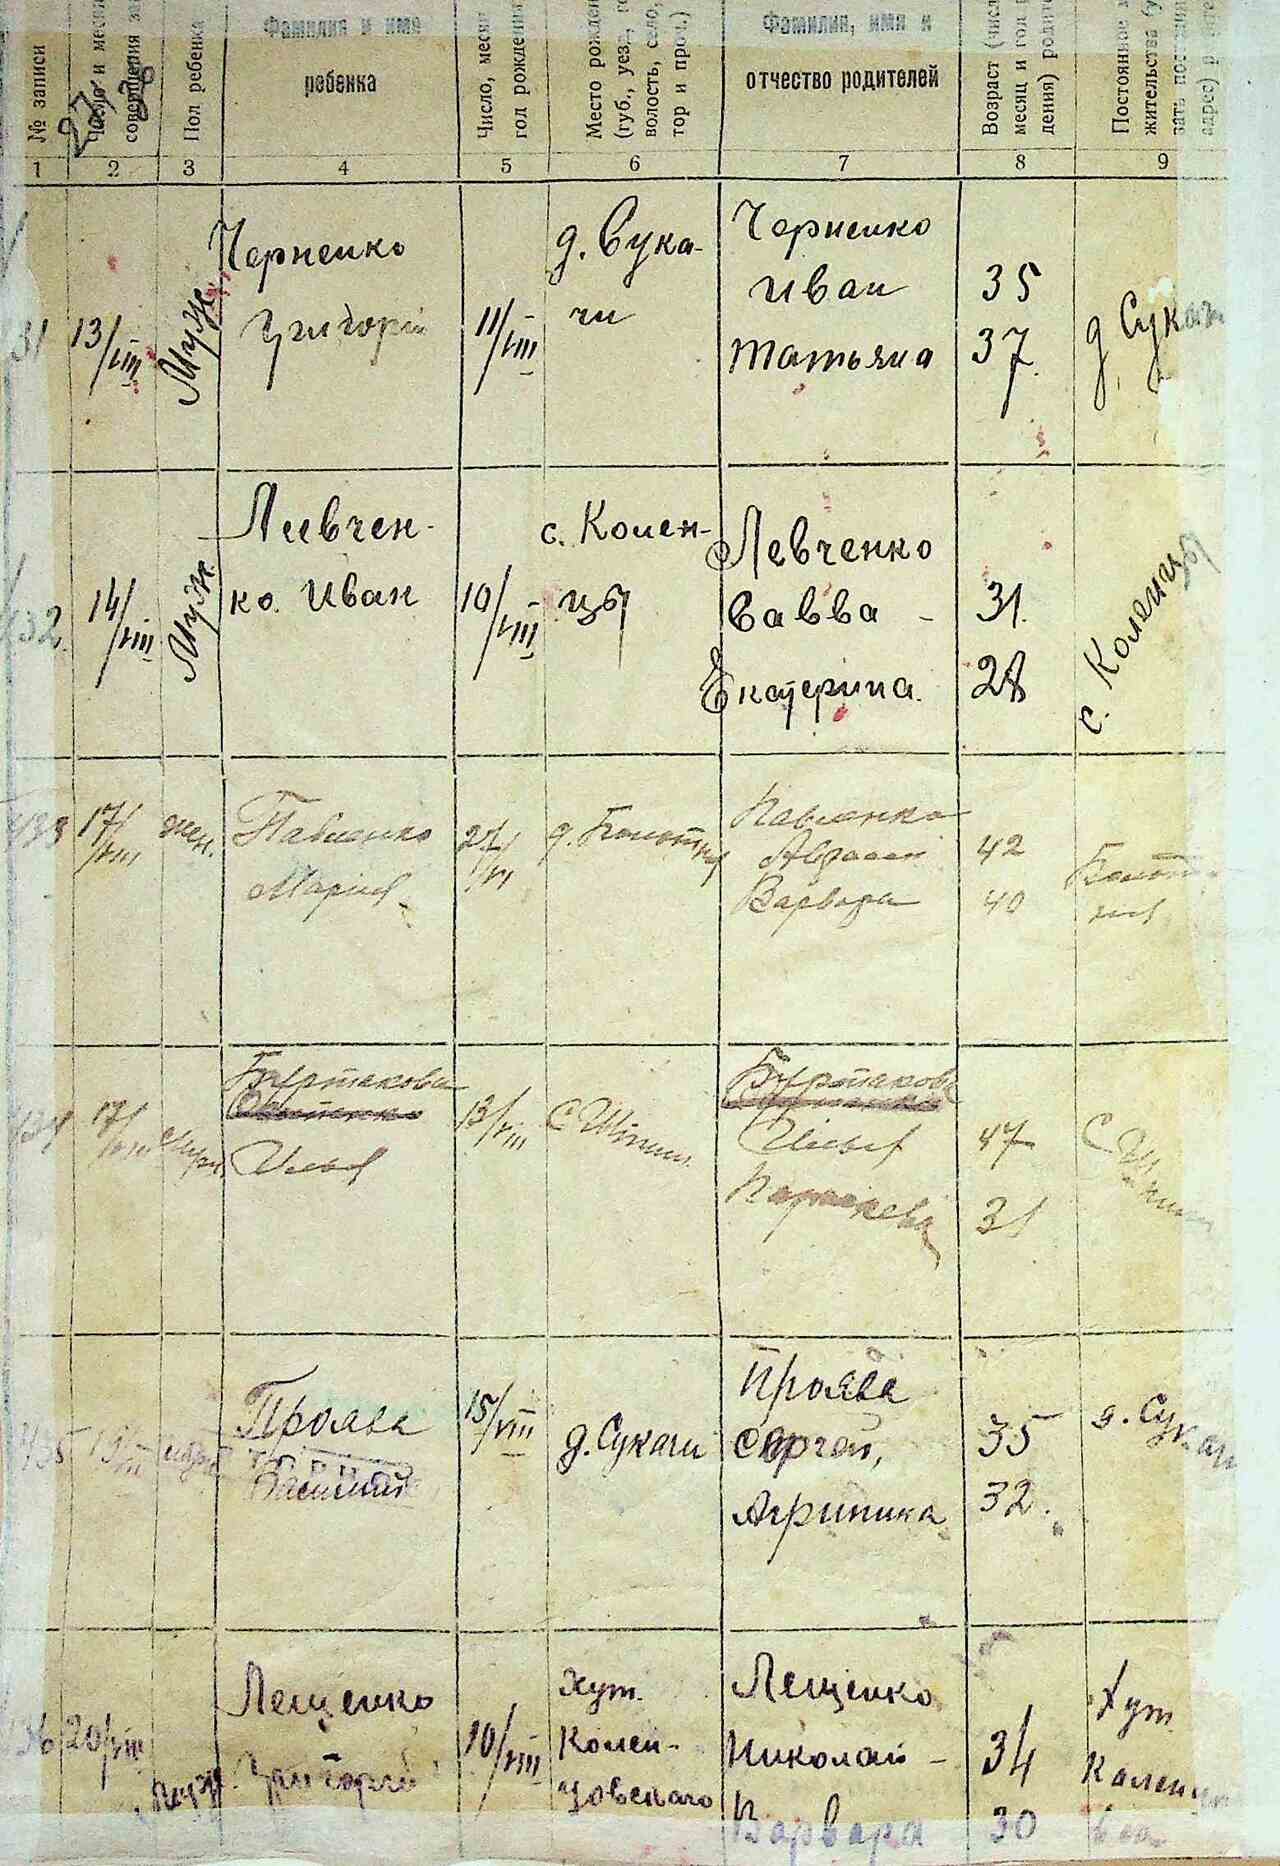 № записи
Число и месяц
совершения
27/
Пол ребенка
Фамилия и имя
ребенка
Число, месяц
год рождения
Место рожден
(губ., уез.,
волость, село,
тор и проч.)
Фамилия, имя и
отчество родителей
Возраст (числ
месяц и год
дения) родите
Постоянное
жительства
зать последн
адрес)
1 2 3 4 5 6 7 8 9
31
13/VIII
Муж.
Черненко
Григорий
11/VIII
д. Сука-
чи
Черненко
Иван
Татьяна
35
37.
д. Сукачи
432.
14/VIII
Муж.
Ливчен-
ко. Иван
10/VIII
с. Колен-
цы
Левченко
Савва -
Екатерина.
31.
28
с. Коленцы
433
17/VIII
жен.
Павленко
Мария
27/VII
д. Болотня
Павленко
Варвара
42
40
Болот-
ня
434
17/VIII
Буртакова
Илья
13/VIII
с.
Буртакова
Илья
Параскева
47
31
с.
435
муж
Проява
Василий
15/VIII
д. Сукачи
Проява
Сергей,
Агрипина
35
32.
д. Сукачи
436
20/VIII
Муж.
Лещенко
Григорий
10/VIII
Хут.
Колен-
цовского
Лещенко
Николай -
Варвара
34
30
Хут
Коленц